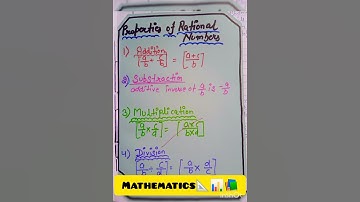 Properties of Rational
Numbers
1) Addition
[a/b + c/b] = [a+c/b]
2) Substraction
additive inverse of a/b is -a/b
3) Multiplication
[a/b × c/d] = [a×c/b×d]
4) Division
[a/b ÷ c/d] = [a/b × d/c]
MATHEMATICS📐📊📚